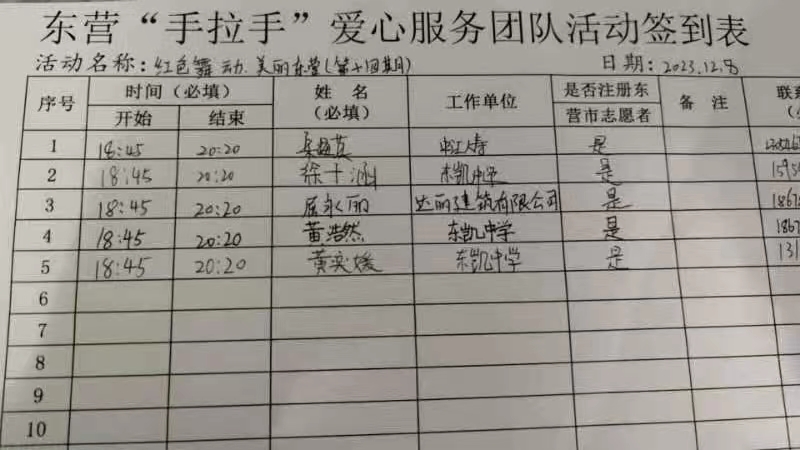 东营“手拉手”爱心服务团队活动签到表
活动名称：红色舞动.美丽东营(第十四期) 日期：2023.12.8
序号 时间（必填） 姓名（必填） 工作单位 是否注册东营市志愿者 备注 联系
开始 结束
1 18:45 20:20 是
2 18:45 20:20 徐十涵 东凯中学 是 1595
3 18:45 20:20 屈永丽 达丽建筑有限公司 是 1867
4 18:45 20:20 黄浩然 东凯中学 是 1867
5 18:45 20:20 黄奕媛 东凯中学 是 131
6
7
8
9
10